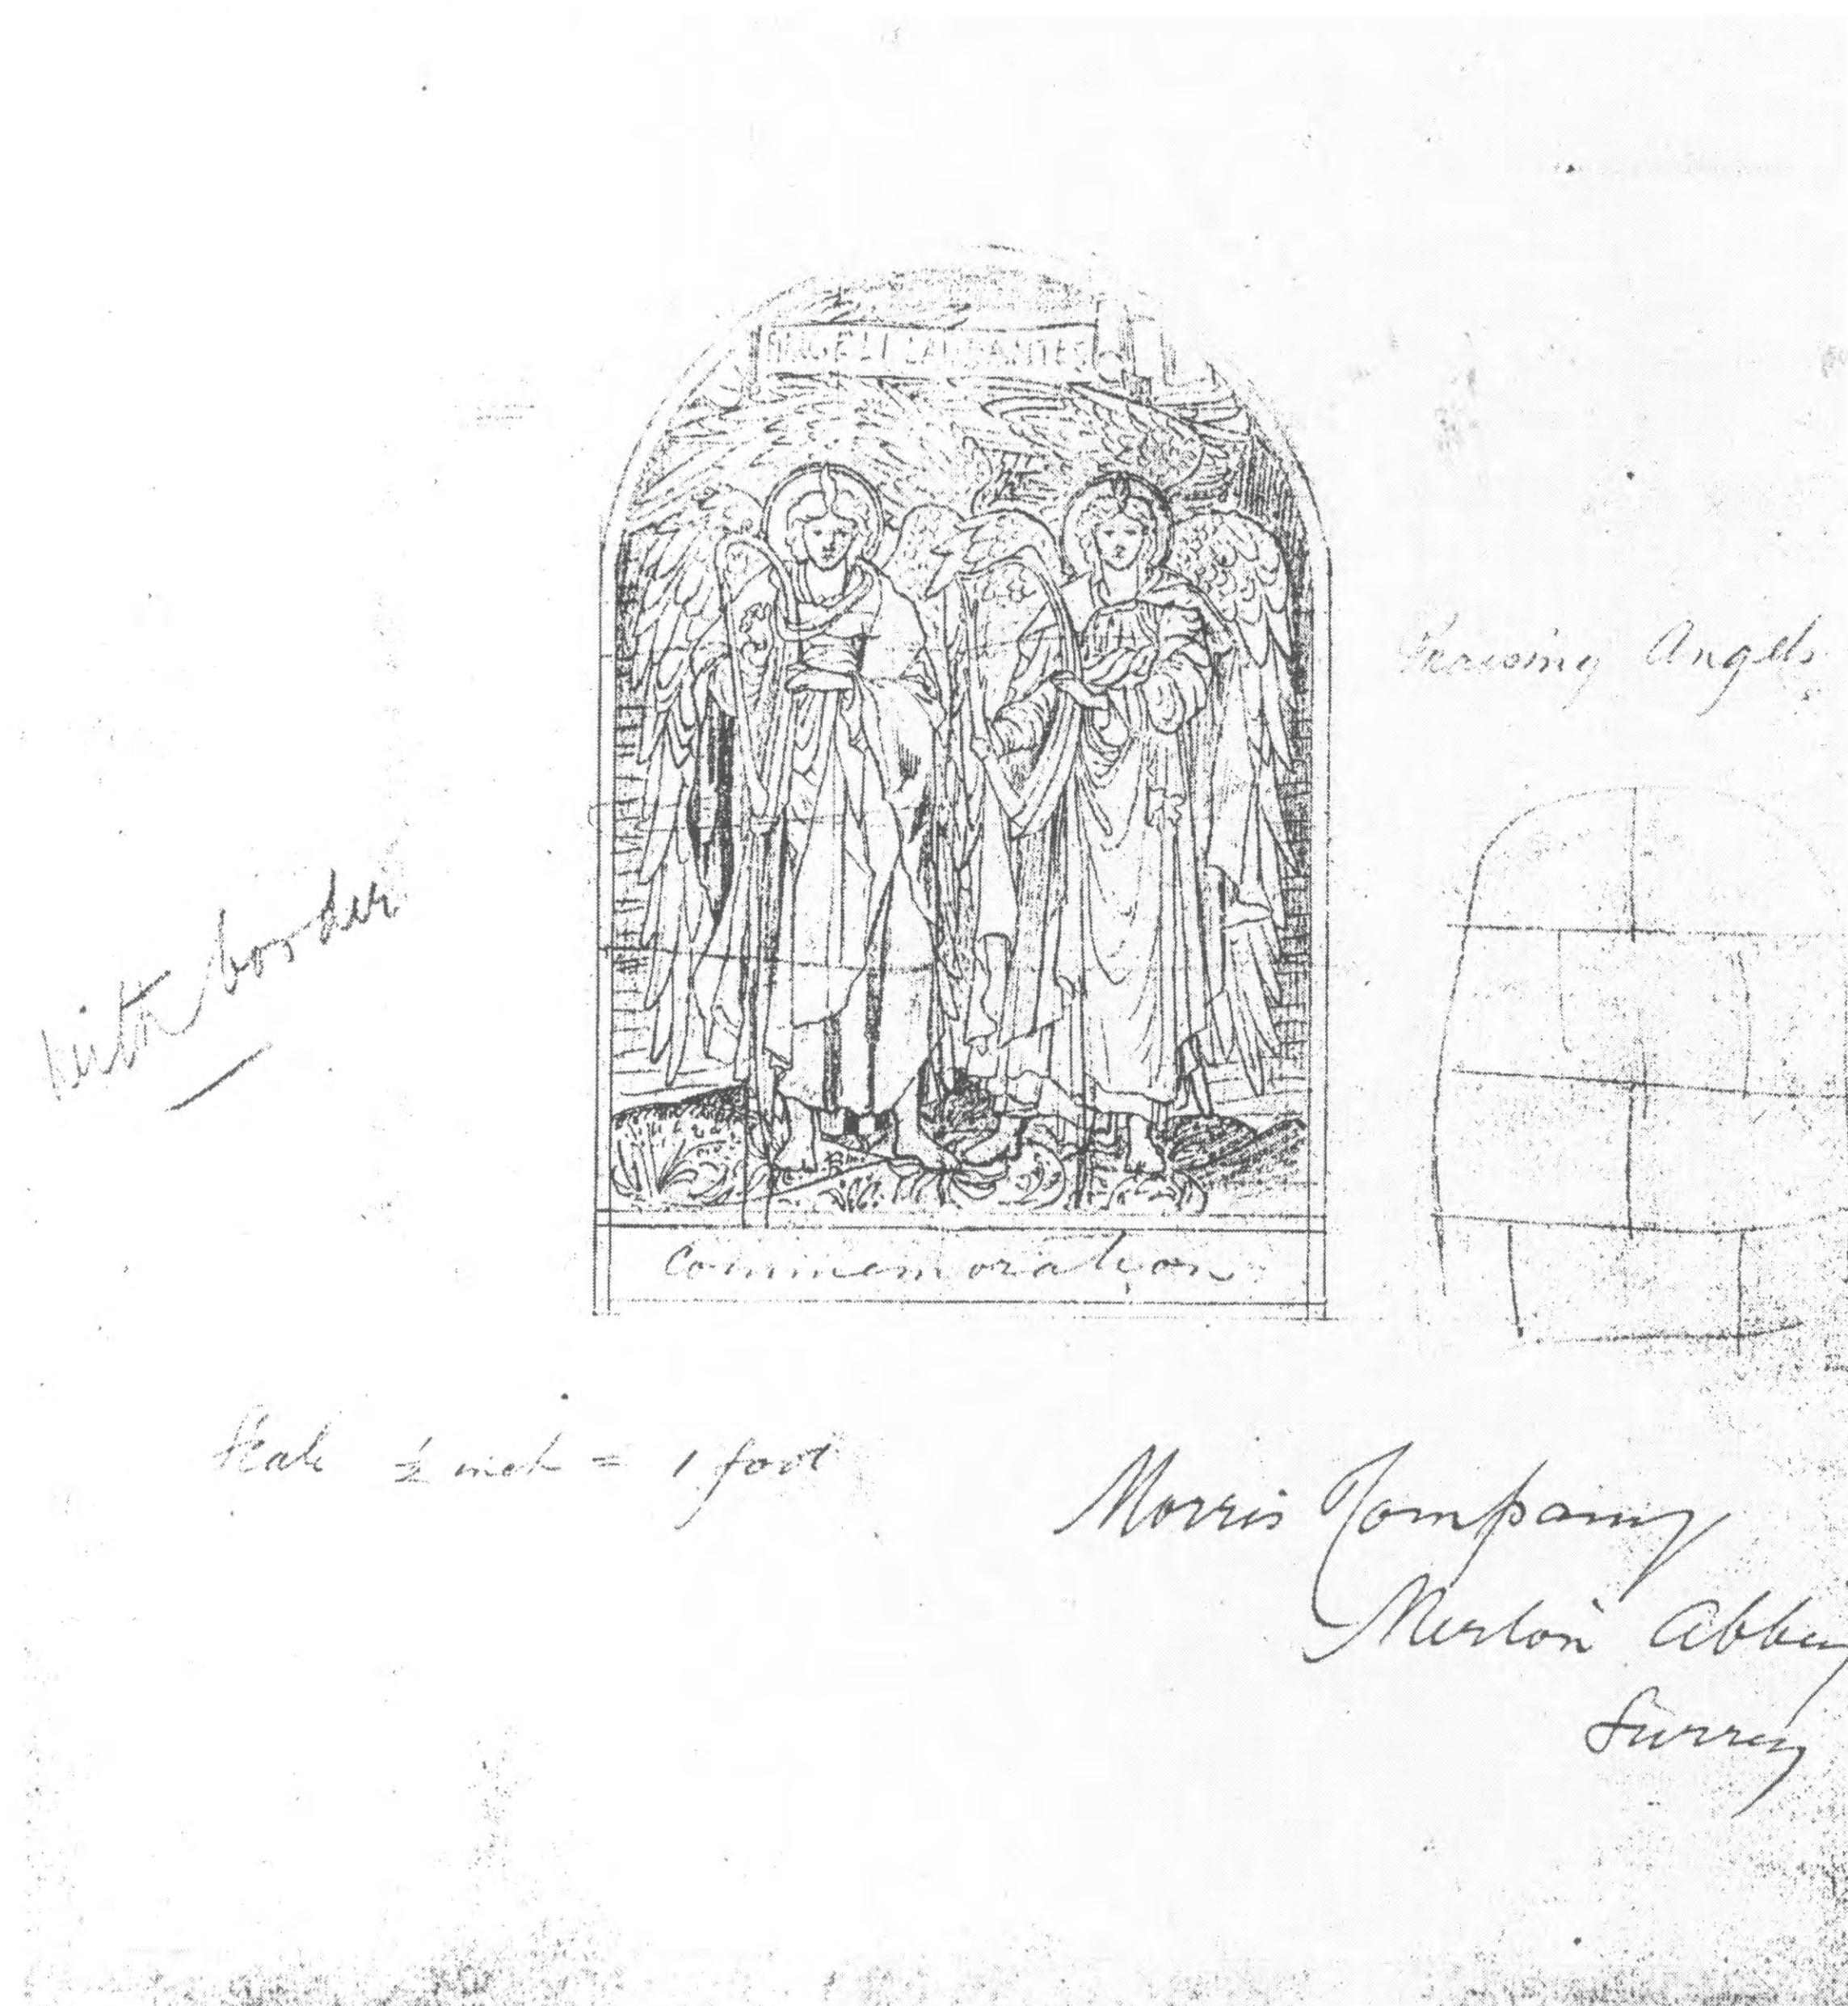 ANGELI LAUDANTES
Praising Angels
With border
Commemoration
Scale ½ inch = 1 foot
Morris & Company
Merton Abbey
Surrey